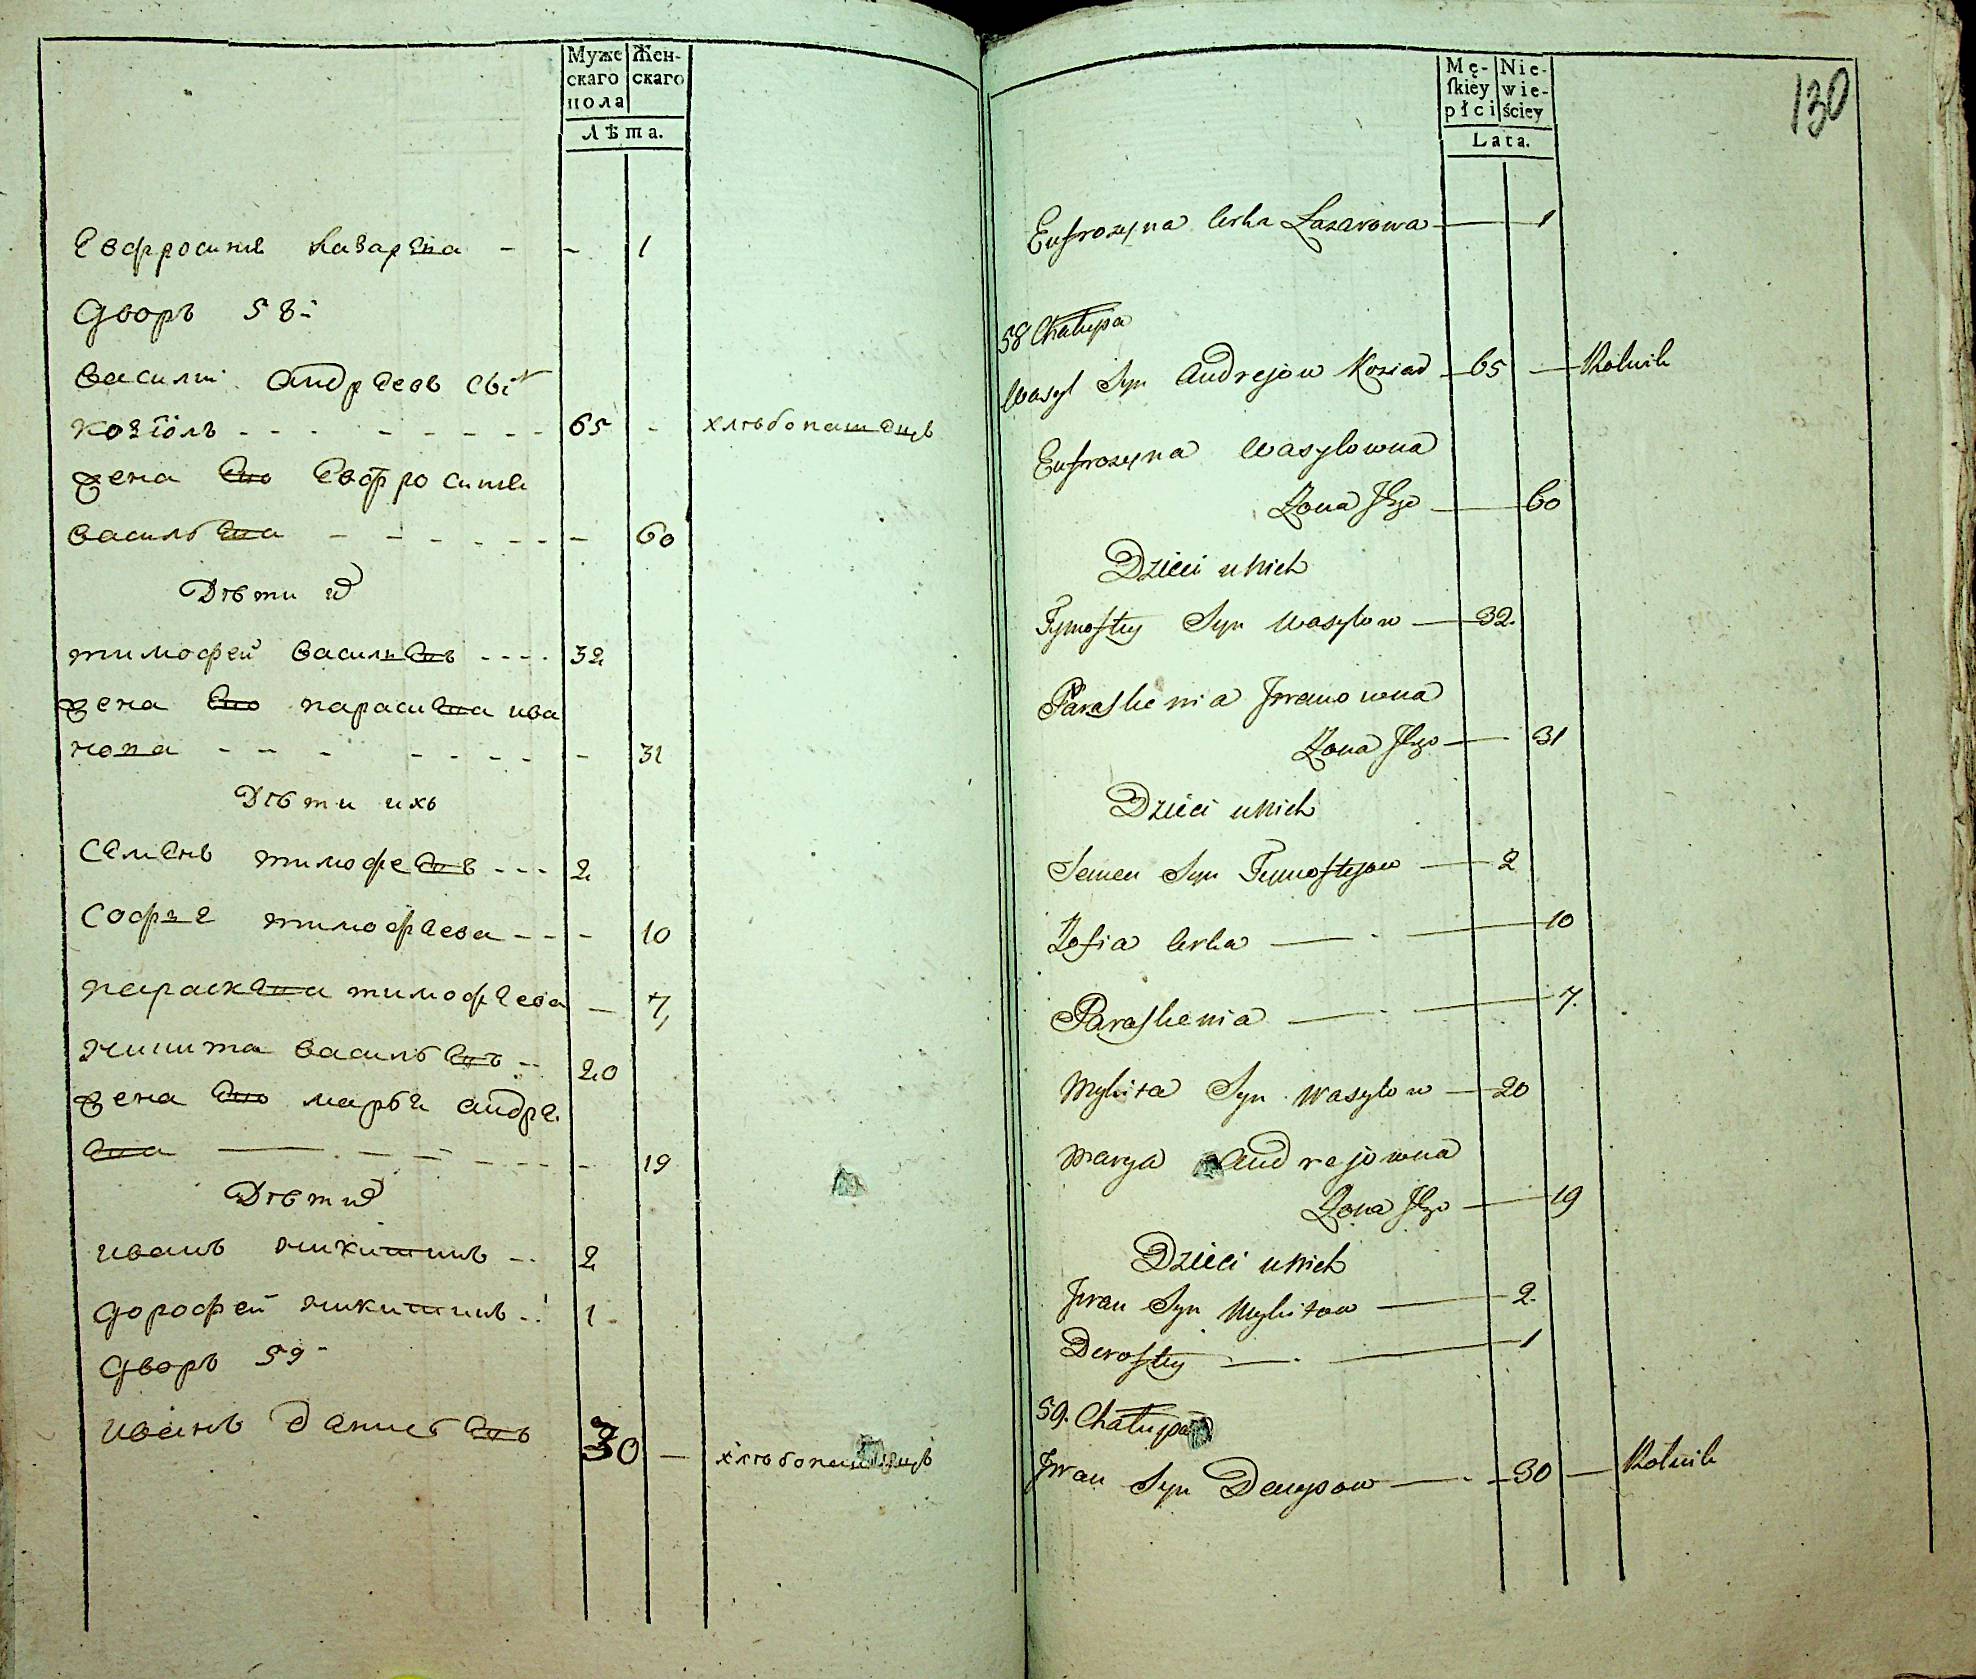 Муже
скаго
пола
Жен-
скаго
Лѣта.
Евфросинѣ Лазарева - - 1
Дворъ 58-
Василий Андреевъ сы
козїолъ - - - - - - - - 65 - хлѣбопашецъ
жена Его Евфросинѣ
васильева - - - - - - - 60
Дѣти их
тимофей василиевъ - - - - 32
жена Его парасиева ива
нова - - - - - - - - 31
Дѣти ихъ
Семенъ тимофеевъ - - - 2
Софья тимофеева - - - 10
параскева тимофеева — 7
никита васильевъ - - 20
жена Его марья андре
ева — - - - - - - 19
Дѣти их
иванъ никитинъ - - 2
дорофей никитинъ - - 1
дворъ 59-
иванъ Даниевъ 30 — хлѣбопашецъ
130
Mę-
ſkiey
płci
Nie-
wie-
ściey
Lata.
Eufrozyna Corka Lazarowa — 1
58 Chałupa
Wasyl Syn Andrejow Koziad — 65 — Rolnik
Eufrozyna Wasylowna
Zona Jego — 60
Dzieci u Nich
Tymoftey Syn Wasylow — 32.
Paraskewia Jwanowna
Zona Jego — 31
Dzieci u Nich
Semen Syn Tymoftejow — 2
Zofia Corka — - — 10
Paraskewia — - — 7.
Mykita Syn Wasylow — 20
Marya Andrejowna
Zona Jego — 19
Dzieci u Nich
Jwan Syn Mykitow — 2.
Doroftey — - — 1
59. Chałupa
Jwan Syn Denysow — - — 30 — Rolnik